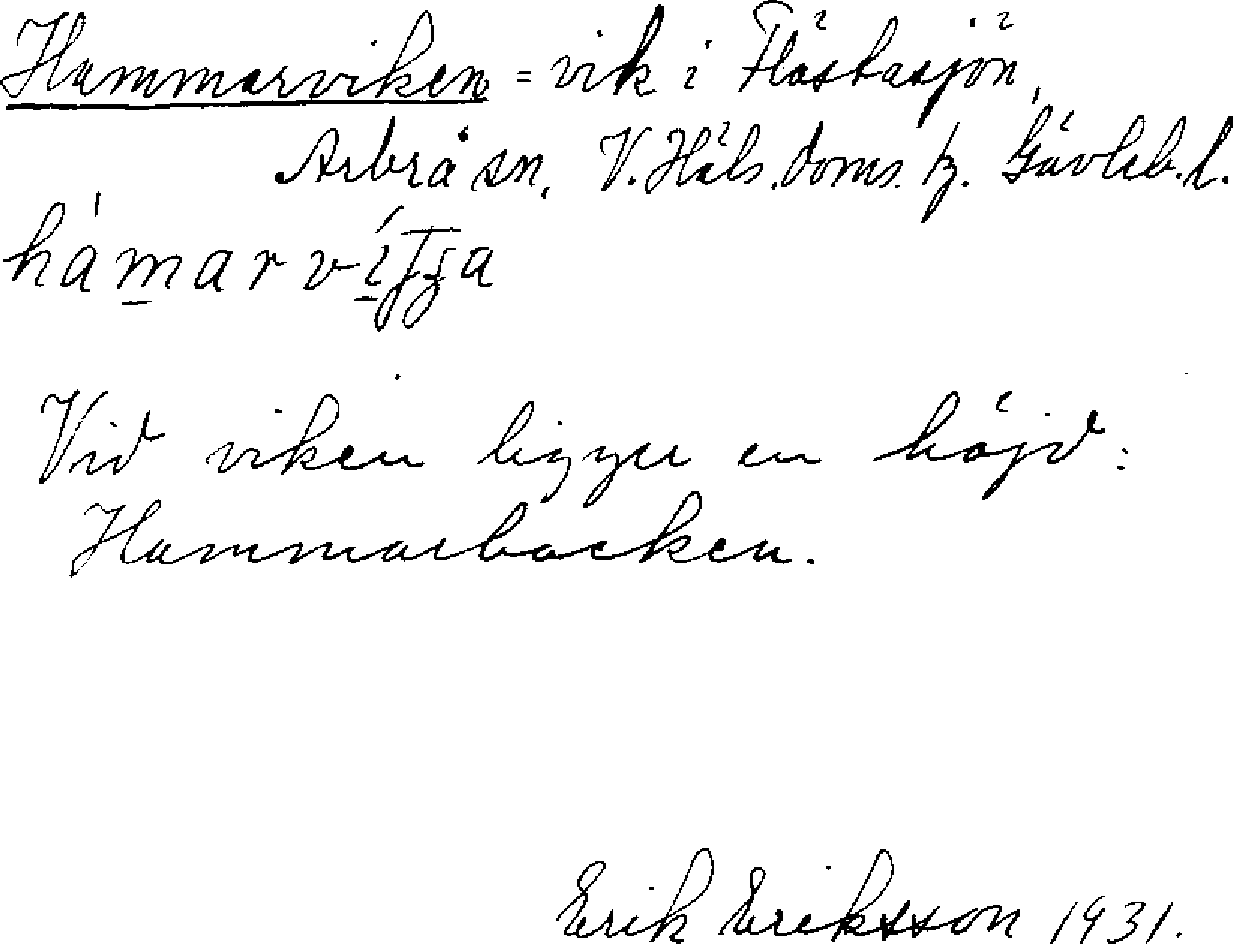 Hammarviken = vik i Flästasjön,
Arbrå sn, V. Häls. doms. hz. Gävleb. l.
Vid viken ligger en höjd:
Hammarbacken.
Erik Eriksson 1931.